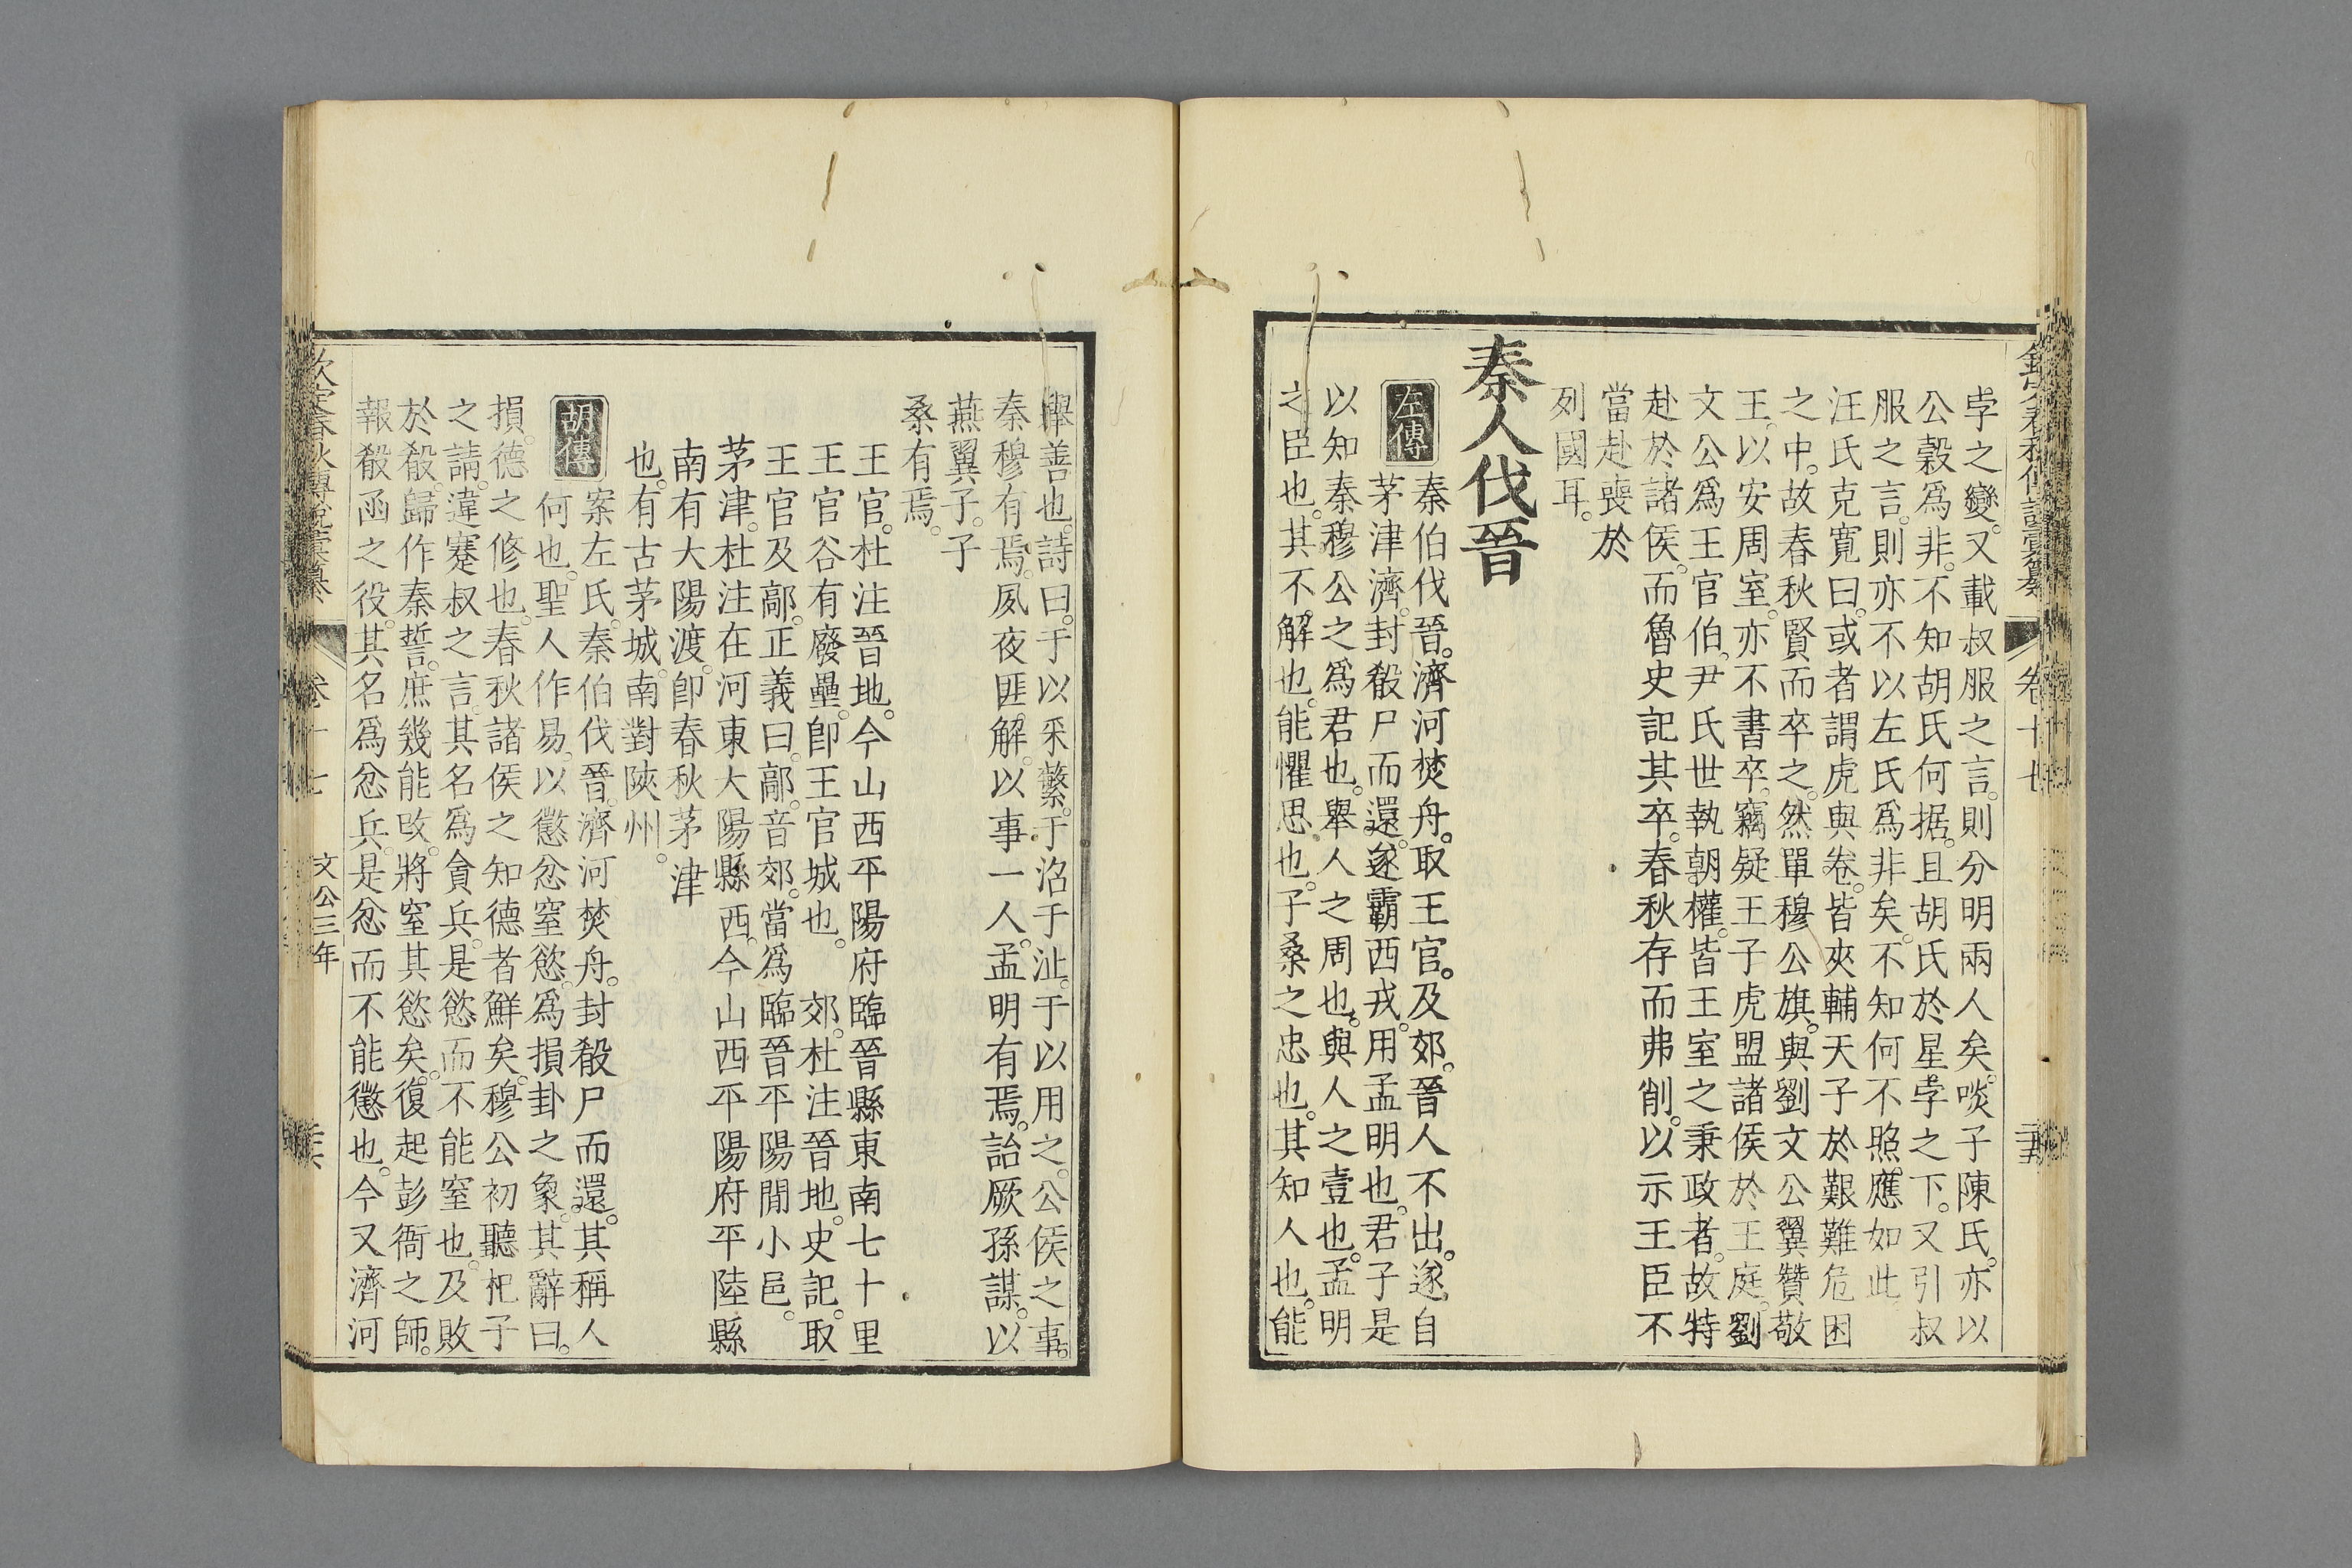 欽定春秋傳說彙纂 卷十七
孛之變。又載叔服之言。則分明兩人矣。啖子陳氏。亦以
公穀爲非。不知胡氏何据。且胡氏於星孛之下。又引叔
服之言。則亦不以左氏爲非矣。不知何不照應如此。
汪氏克寬曰。或者謂虎與卷。皆夾輔天子於艱難危困
之中。故春秋賢而卒之。然單穆公旗。與劉文公翼贊敬
王。以安周室。亦不書卒。竊疑王子虎盟諸侯於王庭。劉
文公爲王官伯。尹氏世執朝權。皆王室之秉政者。故特
赴於諸侯。而魯史記其卒。春秋存而弗削。以示王臣不
當赴喪於
列國耳。
秦人伐晉
左傳
秦伯伐晉。濟河焚舟。取王官。及郊。晉人不出。遂自
茅津濟。封殽尸而還。遂霸西戎。用孟明也。君子是
以知秦穆公之爲君也。舉人之周也。與人之壹也。孟明
之臣也。其不解也。能懼思也。子桑之忠也。其知人也。能
舉善也。詩曰。于以采蘩。于沼于沚。于以用之。公侯之事。
秦穆有焉。夙夜匪解。以事一人。孟明有焉。詒厥孫謀。以
燕翼子。子
桑有焉。
王官。杜注晉地。今山西平陽府臨晉縣東南七十里
王官谷有廢壘。卽王官城也。 郊。杜注晉地。史記。取
王官及鄗。正義曰。鄗。音郊。當爲臨晉平陽閒小邑。
茅津。杜注在河東大陽縣西。今山西平陽府平陸縣
南有大陽渡。卽春秋茅津
也。有古茅城。南對陝州。
胡傳
案左氏。秦伯伐晉。濟河焚舟。封殽尸而還。其稱人
何也。聖人作易。以懲忿窒慾。爲損卦之象。其辭曰。
損。德之修也。春秋諸侯之知德者鮮矣。穆公初聽杞子
之請。違蹇叔之言。其名爲貪兵。是慾而不能窒也。及敗
於殽。歸作秦誓。庶幾能攺。將窒其慾矣。復起彭衙之師。
報殽函之役。其名爲忿兵。是忿而不能懲也。今又濟河
欽定春秋傳說彙纂 卷十七 文公三年